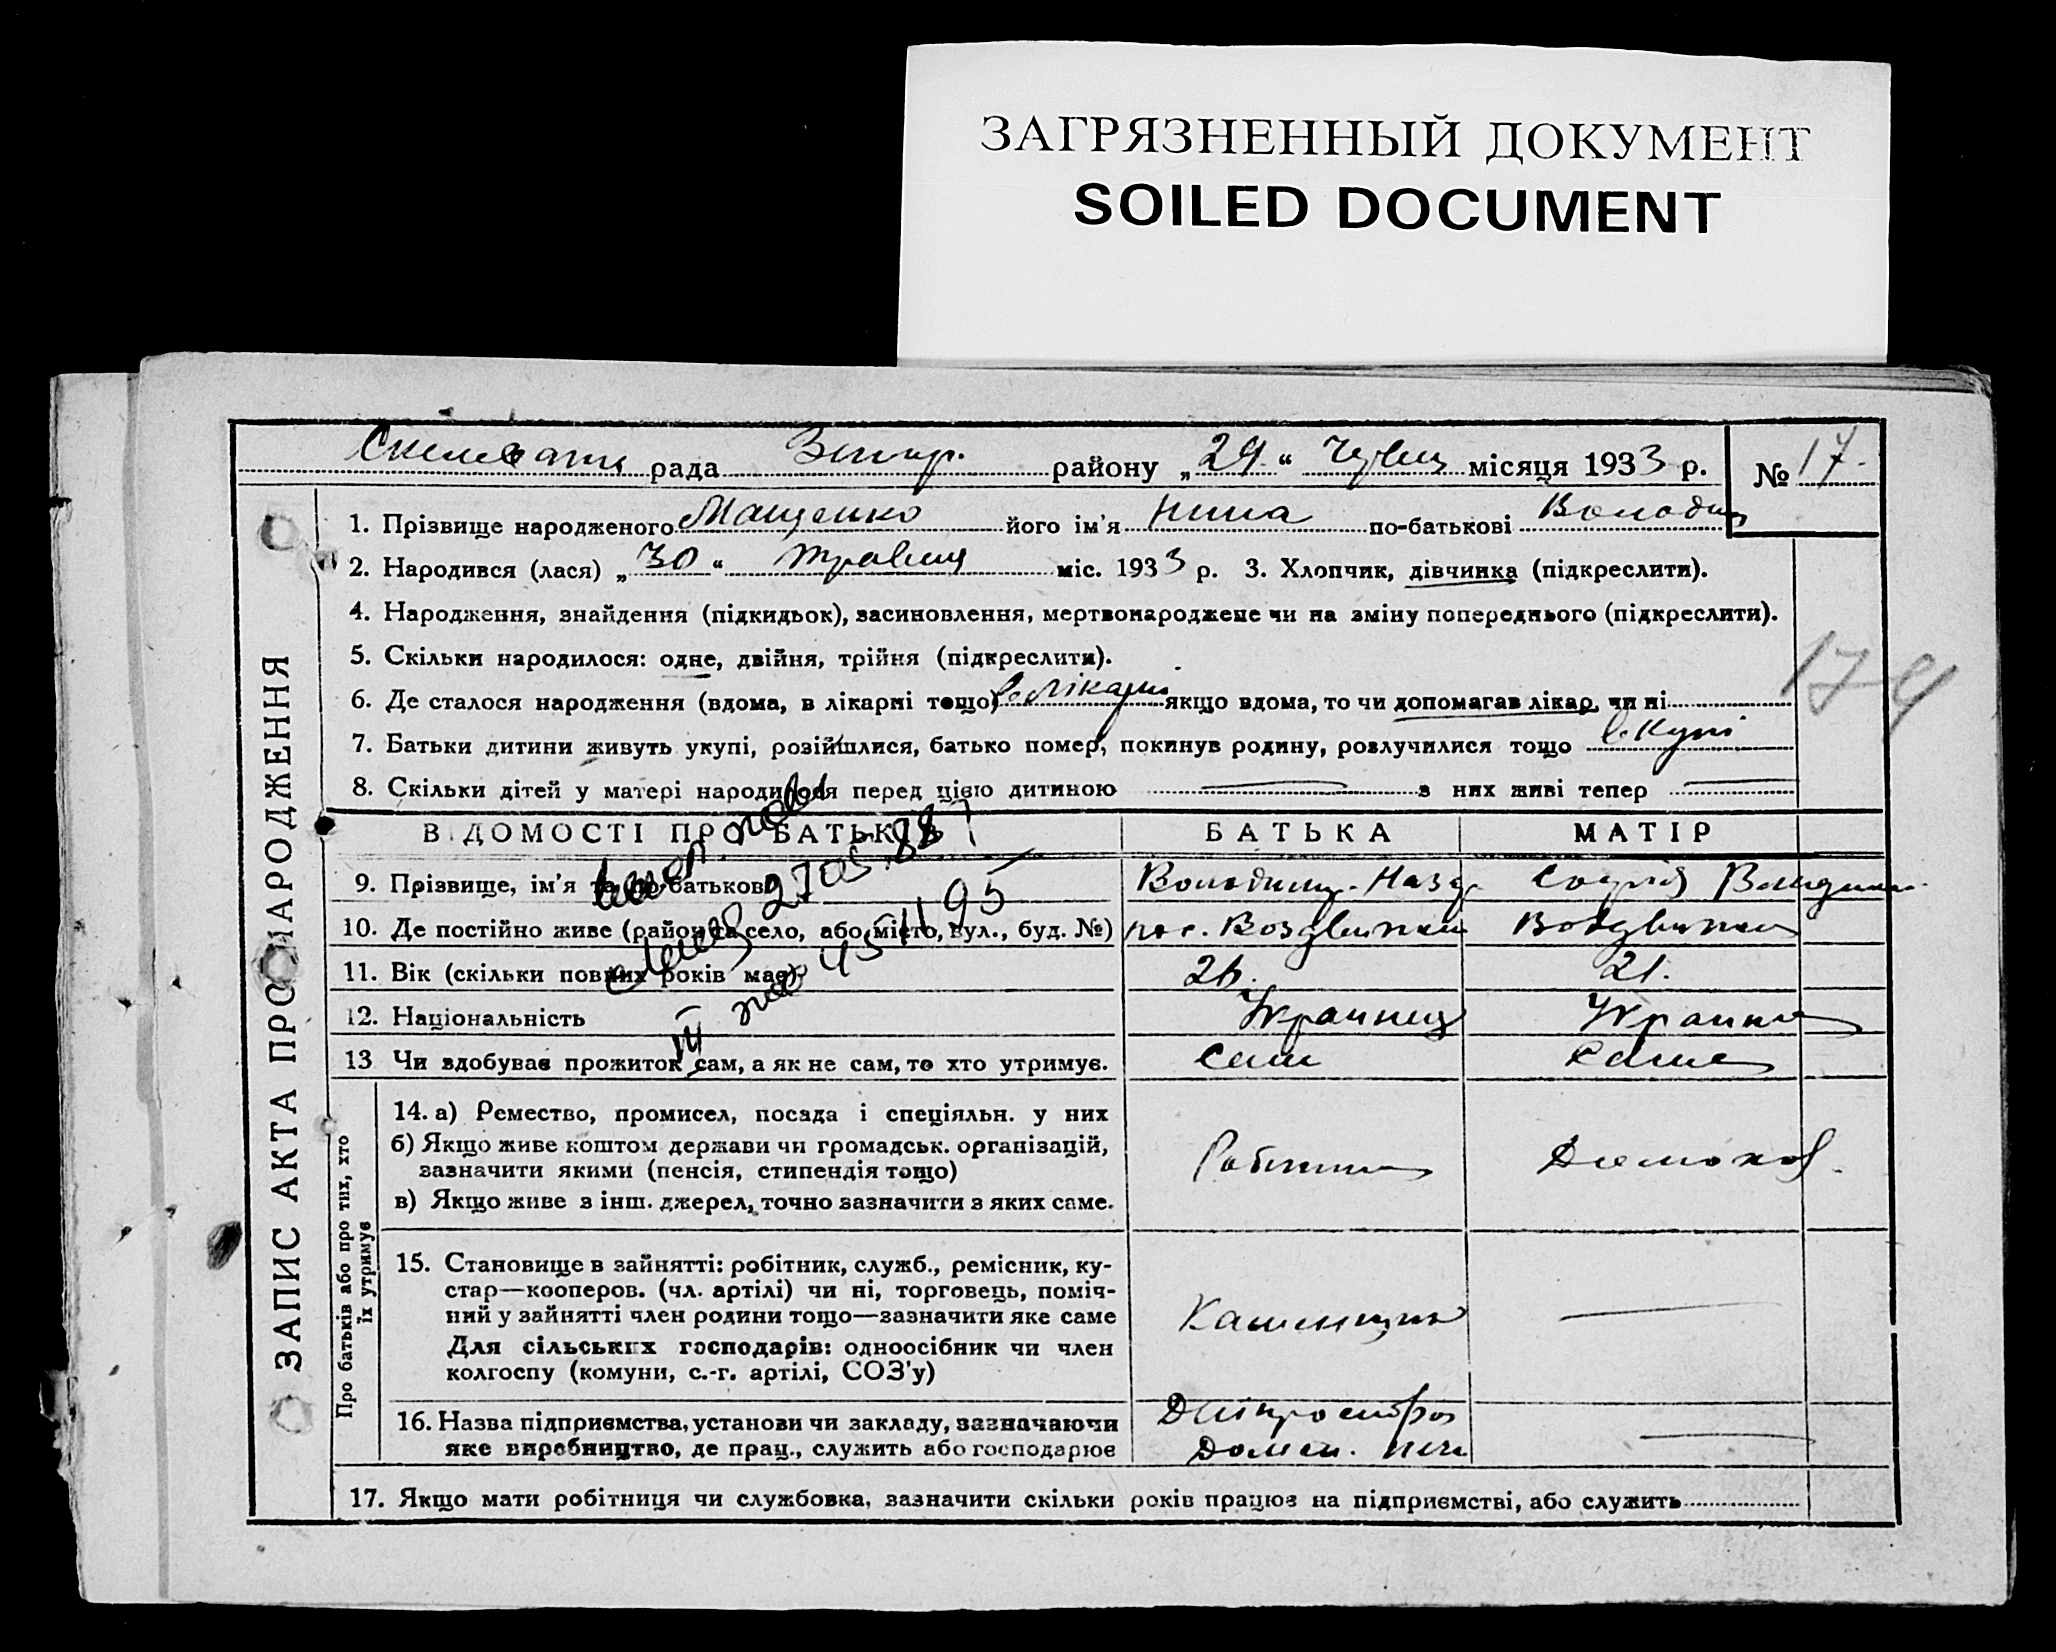 ЗАГРЯЗНЕННЫЙ ДОКУМЕНТ
SOILED DOCUMENT
рада район у „29“ місяця 1933 р. № 17.
ЗАПИС АКТА ПРО НАРОДЖЕННЯ
1. Прізвище народженого Мащенко його ім'я Нина по-батькові Володим
2. Народився (лася) „30“ травня міс. 1933 р. 3. Хлопчик, дівчинка (підкреслити).
4. Народження, знайдення (підкидьок), засиновлення, мертвонароджене чи на зміну попереднього (підкреслити).
5. Скільки народилося: одне, двійня, трійня (підкреслити).
6. Де сталося народження (вдома, в лікарні тощо) в лікарні якщо вдома, то чи допомагав лікар, чи ні
174
7. Батьки дитини живуть укупі, розійшлися, батько помер, покинув родину, розлучилися тощо вкупі
8. Скільки дітей у матері народилося перед цією дитиною — з них живі тепер —
ВІДОМОСТІ ПРО БАТЬКІВ БАТЬКА МАТІР
9. Прізвище, ім'я та по-батькові Володимир Наз Софія Володим
10. Де постійно живе (район та село, або місто, вул., буд. №) пос. Воздвижен Воздвижен
11. Вік (скільки повних років має) 26. 21.
12. Національність Украинец Украин
13 Чи здобуває прожиток сам, а як не сам, то хто утримує. Сам Сама
27 05. 88
III
95
Про батьків або про тих, хто їх утримує
14. а) Ремество, промисел, посада і спеціяльн. у них
б) Якщо живе коштом держави чи громадськ. організацій,
зазначити якими (пенсія, стипендія тощо)
в) Якщо живе з інш. джерел, точно зазначити з яких саме.
Робітник Домохоз.
15. Становище в зайнятті: робітник, служб., ремісник, ку-
стар—кооперов. (чл. артілі) чи ні, торговець, поміч-
ний у зайнятті член родини тощо—зазначити яке саме
Для сільських господарів: одноосібник чи член
колгоспу (комуни, с.-г. артілі, СОЗ'у)
Каменщик —
16. Назва підприємства, установи чи закладу, зазначаючи
яке виробництво, де прац., служить або господарює
Дніпрострой
Домен. печі —
17. Якщо мати робітниця чи службовка, зазначити скільки років працює на підприємстві, або служить